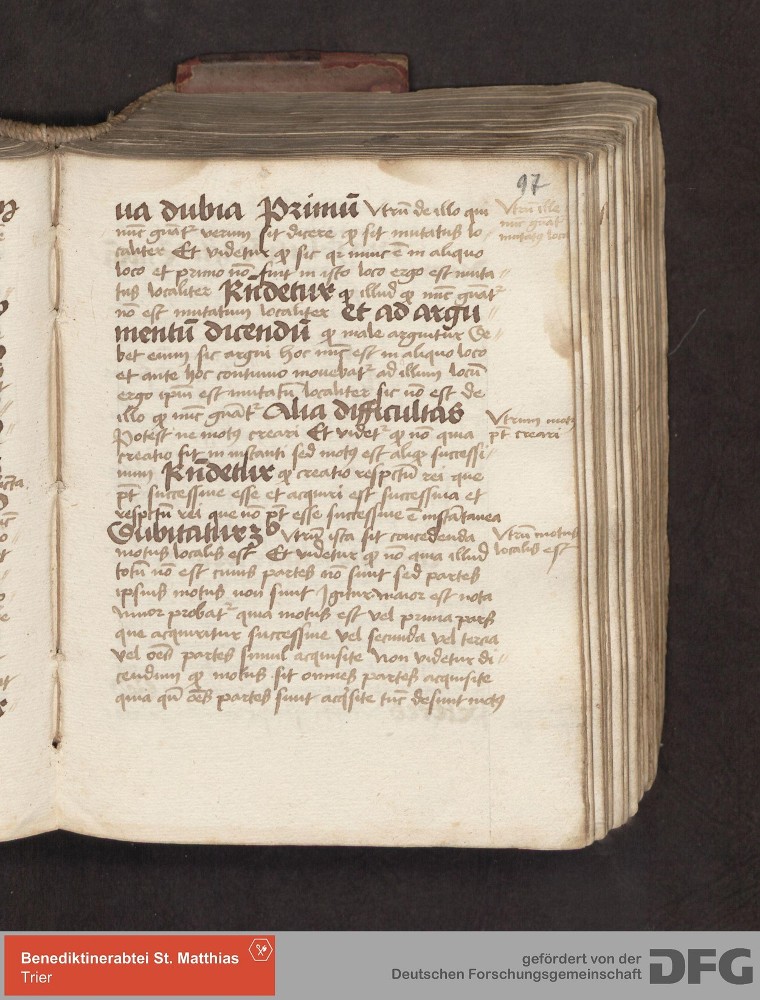 97
ua dubia Primū Vtrū de illo qui
nūc gūat² verum sit dicere ꝙ sit mutatus lo-
caliter Et videtur ꝙ sic qꝛ nunc ē in aliquo
loco et primo nō fuit in isto loco ergo est muta-
tus localiter Rn̄detur ꝙ illud ꝙ nūc gūat²
nō est mutatum localiter et ad argu
mentū dicendū ꝙ male arguitur De-
bet enim sic argui hoc nūc est in aliquo loco
et ante hoc continuo mouebat² ad illum locū
ergo ipm̄ est mutatū localiter sic nō est de
illo ꝙ nūc gūat² Alia difficultas
Potest ne motꝰ creari Et videt² ꝙ nō quia
creatio fit in instanti sed motꝰ est aliqꝫ successi-
uum Rn̄detur ꝙ creatio respctū rei que
pt̄ successiue esse et acquiri est successiua et
respctū rei que nō pt̄ esse successiue ē instātanea
Dubitatur 3ᵒ Vtrū ista sit concedenda
motus localis est Et videtur ꝙ nō quia illud
totū nō est cuius partes nō sunt sed partes
ipsius motus non sunt Igitur maior est nota
minor probat² quia motus est vel prima pars
que acquiratur successiue vel secunda vel tercia
vel oēs partes simul acquisite Non videtur di-
cendum ꝙ motus sit omnes partes acquisite
quia qn̄ oēs partes sunt acqͥsite tūc desunt motꝰ
Vtrū ille
nūc gūat²
mutatꝰ loca
Vtrum motꝰ
pt̄ creari
Vtrū motus
localis est
Benediktinerabtei St. Matthias
Trier
gefördert von der
Deutschen Forschungsgemeinschaft
DFG